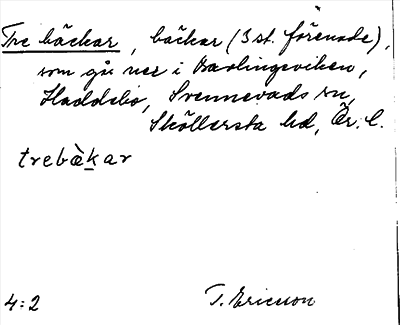 Tre bäckar, bäckar (3 st. förenade),
som gå ner i Barlingeviken,
Haddebo, Svennevads sn,
Sköllersta hd, Ör. l.
trebäkar
4:2 T. Ericsson